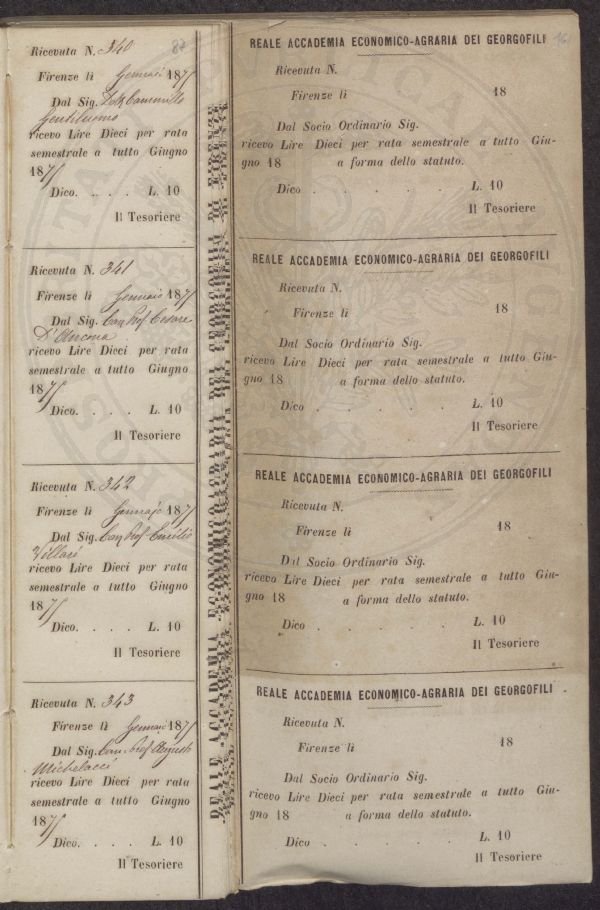 87
Ricevuta N. 340
Firenze li Gennaio 1875
Dal Sig. Dott Cammillo
Gentiluomo
ricevo Lire Dieci per rata
semestrale a tutto Giugno
1875
Dico. . . . L. 10
Il Tesoriere
Ricevuta N. 341
Firenze li Gennaio 1875
Dal Sig. Cav Prof Cesare
D'Ancona
ricevo Lire Dieci per rata
semestrale a tutto Giugno
1875
Dico. . . . L. 10
Il Tesoriere
Ricevuta N. 342
Firenze li Gennajo 1875
Dal Sig. Cav Prof Emilio
Villari
ricevo Lire Dieci per rata
semestrale a tutto Giugno
1875
Dico. . . . L. 10
Il Tesoriere
Ricevuta N. 343
Firenze li Gennaio 1875
Dal Sig. Cav. Prof Augusto
Michelacci
ricevo Lire Dieci per rata
semestrale a tutto Giugno
1875
Dico. . . . L. 10
Il Tesoriere
REALE ACCADEMIA ECONOMICO-AGRARIA DEI GEORGOFILI DI FIRENZE
REALE ACCADEMIA ECONOMICO-AGRARIA DEI GEORGOFILI
Ricevuta N.
Firenze li 18
Dal Socio Ordinario Sig.
ricevo Lire Dieci per rata semestrale a tutto Giu-
gno 18 a forma dello statuto.
Dico . . . . . L. 10
Il Tesoriere
REALE ACCADEMIA ECONOMICO-AGRARIA DEI GEORGOFILI
Ricevuta N.
Firenze li 18
Dal Socio Ordinario Sig.
ricevo Lire Dieci per rata semestrale a tutto Giu-
gno 18 a forma dello statuto.
Dico . . . . . L. 10
Il Tesoriere
REALE ACCADEMIA ECONOMICO-AGRARIA DEI GEORGOFILI
Ricevuta N.
Firenze li 18
Dal Socio Ordinario Sig.
ricevo Lire Dieci per rata semestrale a tutto Giu-
gno 18 a forma dello statuto.
Dico . . . . . L. 10
Il Tesoriere
REALE ACCADEMIA ECONOMICO-AGRARIA DEI GEORGOFILI
Ricevuta N.
Firenze li 18
Dal Socio Ordinario Sig.
ricevo Lire Dieci per rata semestrale a tutto Giu-
gno 18 a forma dello statuto.
Dico . . . . . L. 10
Il Tesoriere